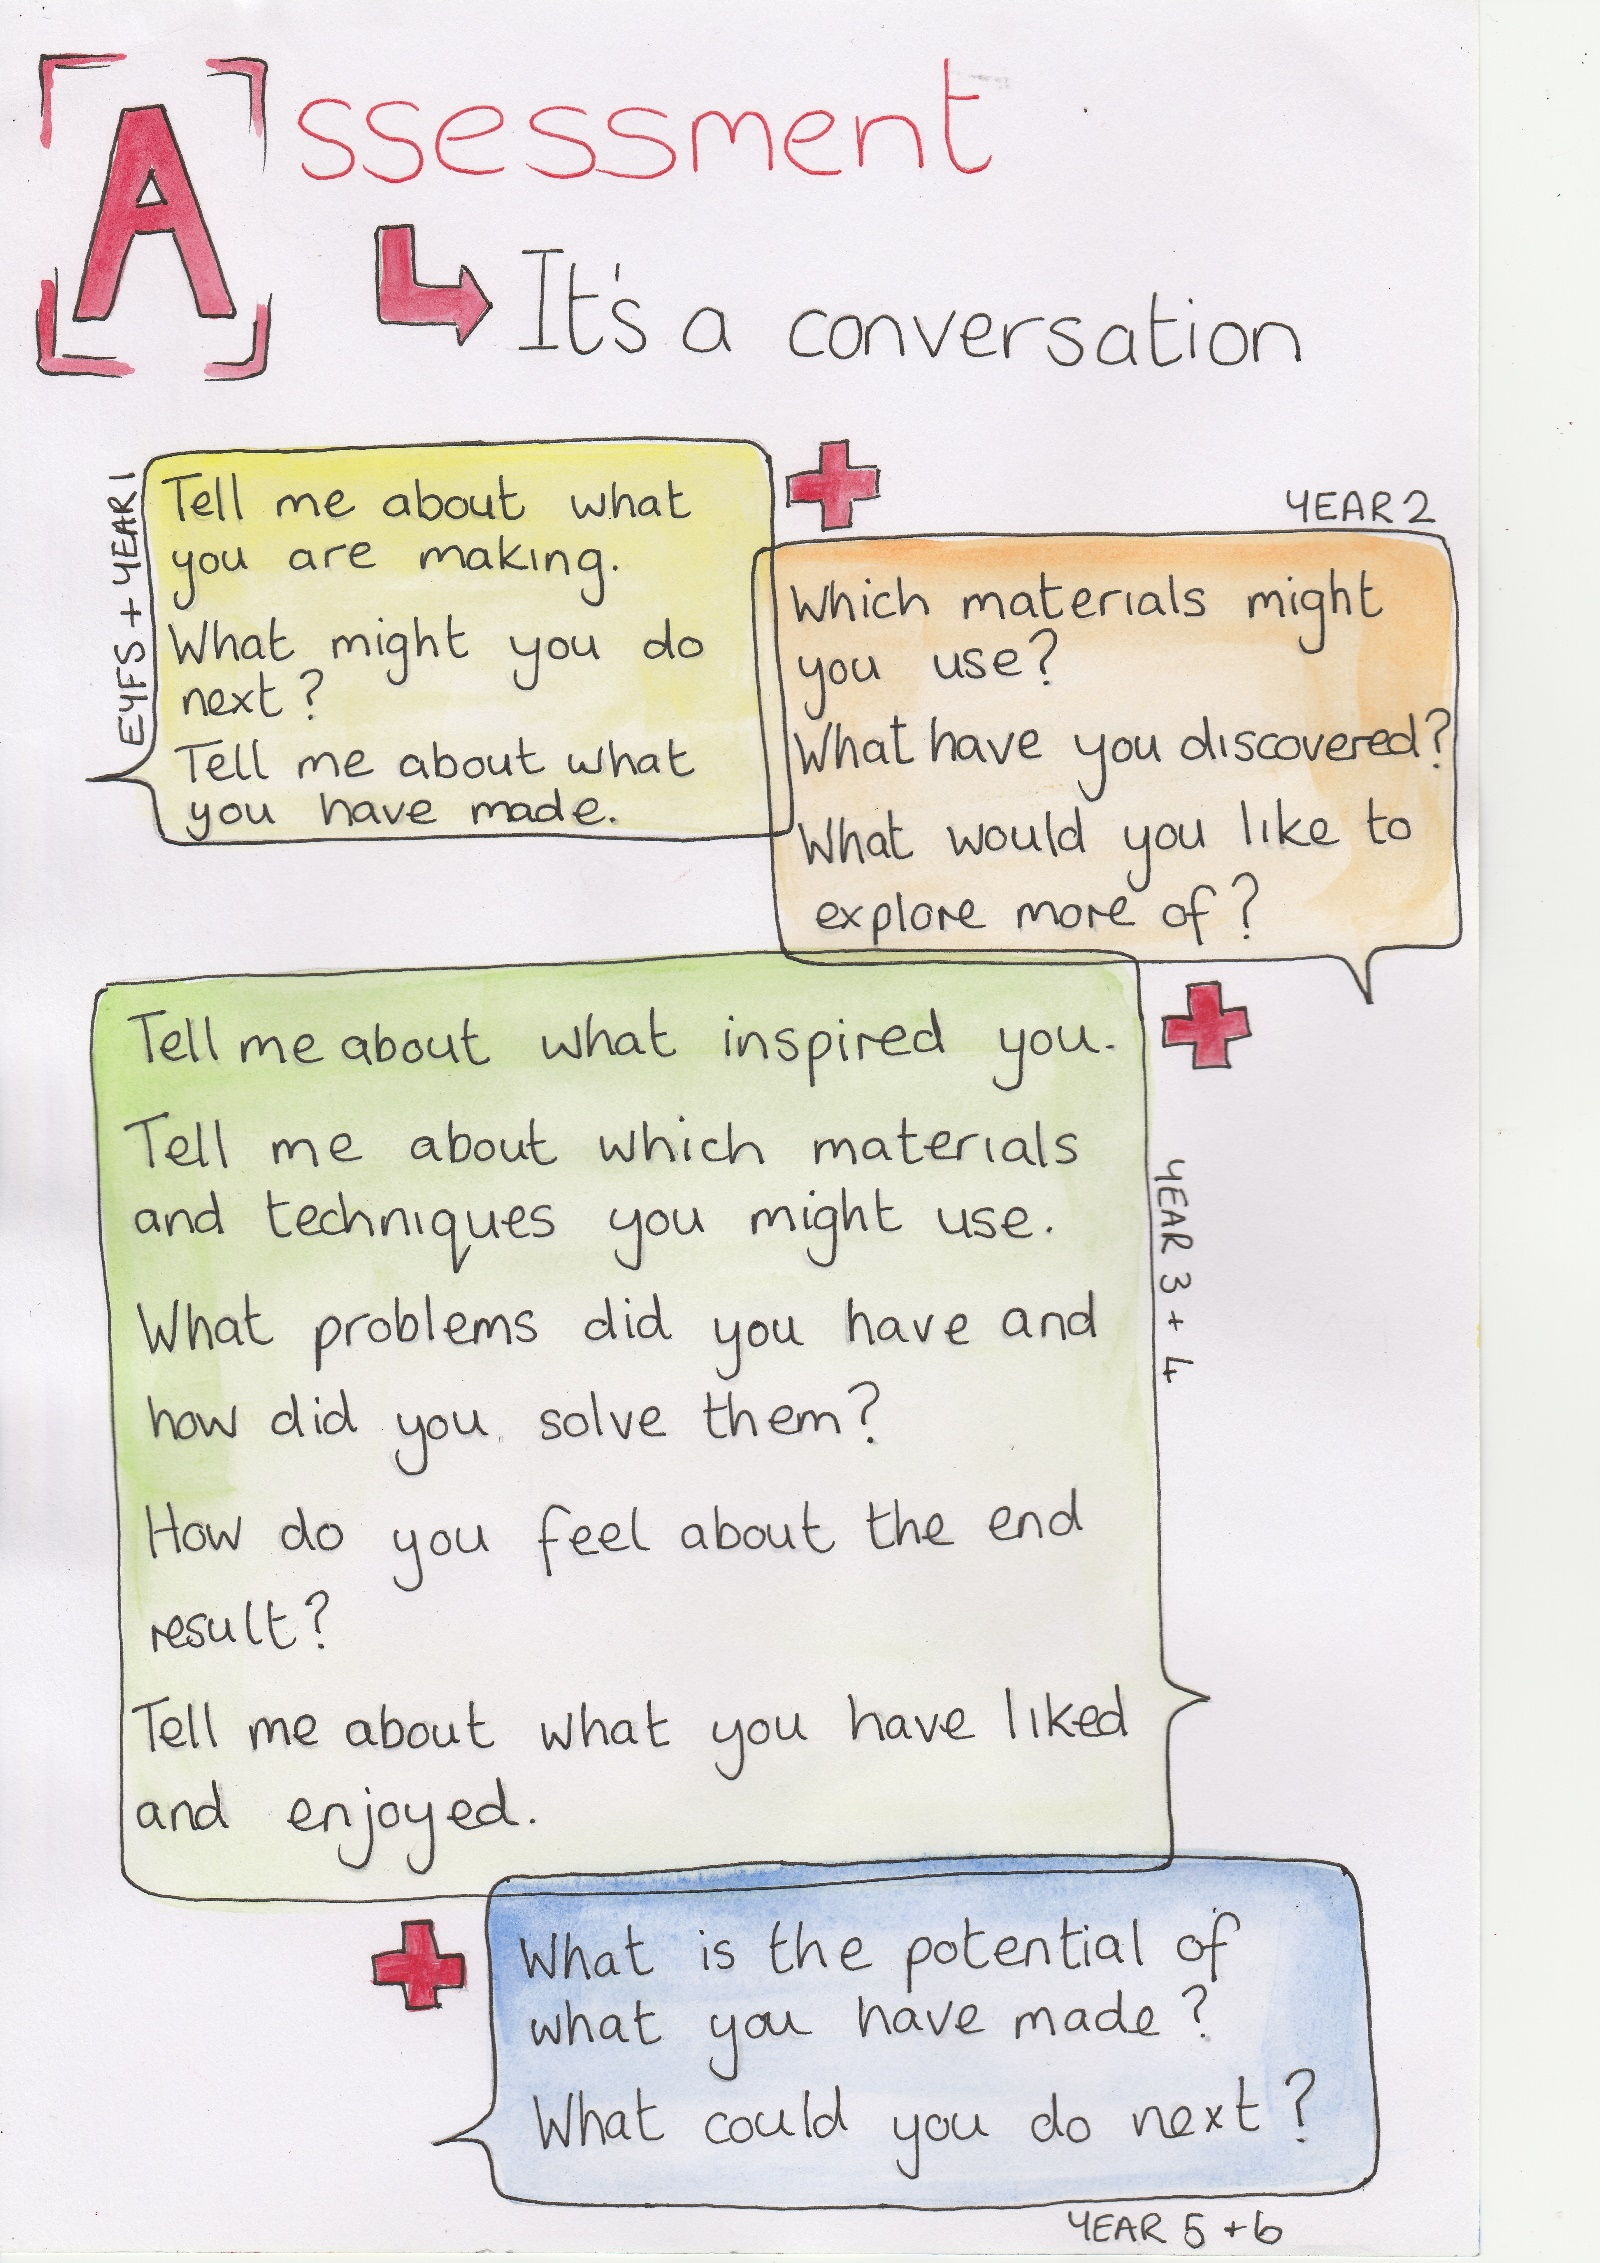 Assessment
It's a conversation
EYFS + YEAR 1
Tell me about what
you are making.
What might you do
next?
Tell me about what
you have made.
YEAR 2
Which materials might
you use?
What have you discovered?
What would you like to
explore more of?
YEAR 3 + 4
Tell me about what inspired you.
Tell me about which materials
and techniques you might use.
What problems did you have and
how did you solve them?
How do you feel about the end
result?
Tell me about what you have liked
and enjoyed.
What is the potential of
what you have made?
What could you do next?
YEAR 5 + 6